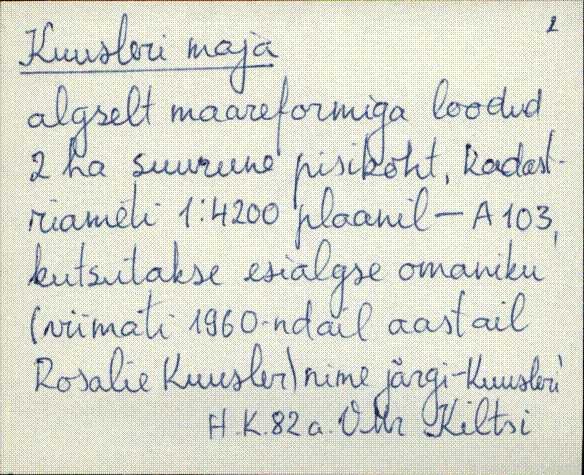 2
Kuusleri maja
algselt maareformiga loodud
2 ha suurune pisikoht, Kadast-
riameti 1:4200 plaanil – A 103,
kutsutakse esialgse omaniku
(viimati 1960-ndail aastail
Rosalie Kuusler) nime järgi – Kuusleri
H.K. 82 a. Kiltsi